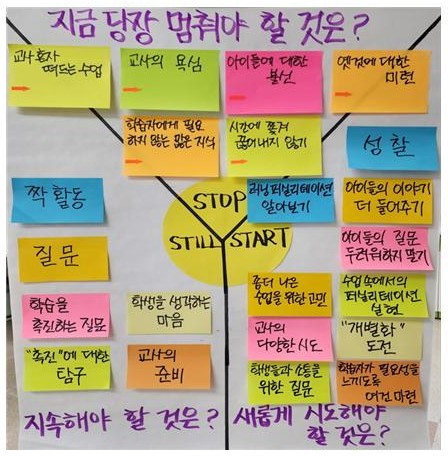 지금 당장 멈춰야 할 것은?
교사 혼자
떠드는 수업
교사의 욕심
아이들에 대한
불신
옛것에 대한
미련
학습자에게 필요
하지 않는 많은 지식
시간에 쫓겨
끊어내지 않기
성찰
짝 활동
STOP
러닝퍼실리테이션
알아보기
아이들의 이야기
더 들어주기
질문
STILL
START
아이들의 질문
두려워하지 말기
학습을
촉진하는 질문
학생을 생각하는
마음
좀더 나은
수업을 위한 고민
수업 속에서의
퍼실리테이션
실현
교사의
다양한 시도
"개별화"
도전
"촉진"에 대한
탐구
교사의
준비
학생들과 소통을
위한 질문
학습자가 필요성을
느끼도록
여건 마련
지속해야 할 것은?
새롭게 시도해야
할 것은?